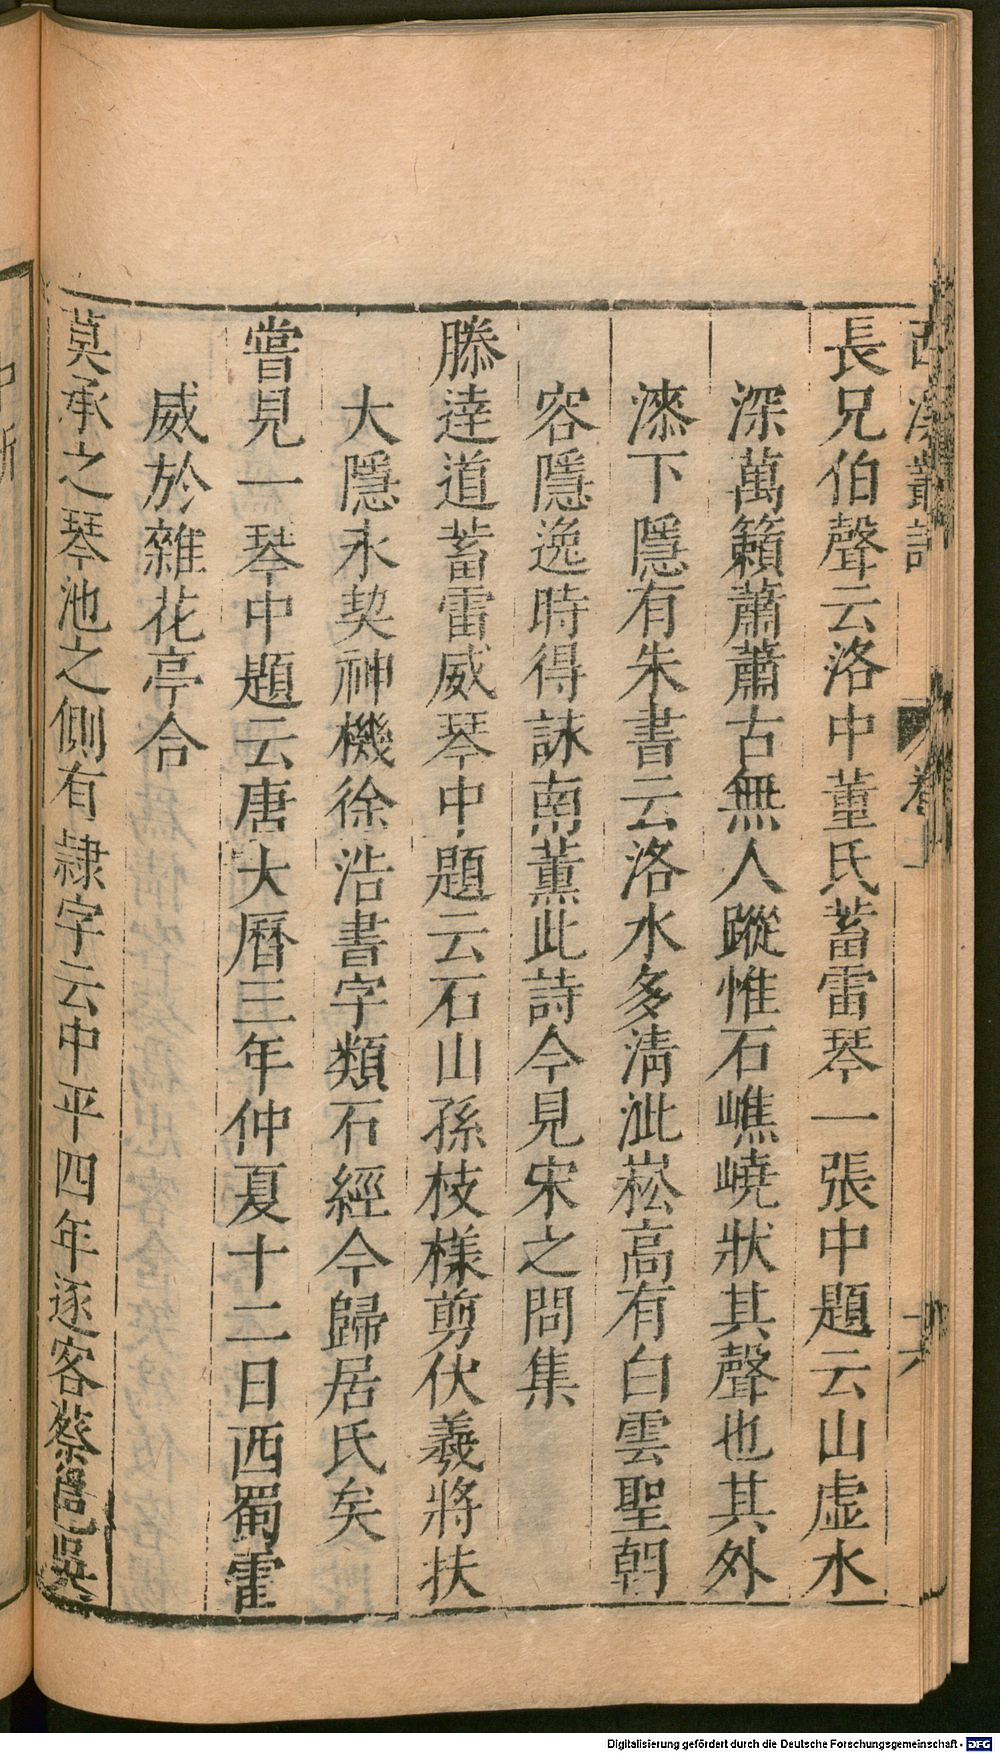 西溪叢語 卷上 十六
長兄伯聲云洛中董氏蓄雷琴一張中題云山虛水
深萬籟蕭蕭古無人蹤惟石嶕嶢狀其聲也其外
漆下隱有朱書云洛水多清泚崧高有白雲聖朝
容隱逸時得詠南薰此詩今見宋之問集
滕達道蓄雷威琴中題云石山孫枝樣剪伏羲將扶
大隱永契神機徐浩書字類石經今歸居氏矣
嘗見一琴中題云唐大曆三年仲夏十二日西蜀霍
威於雜花亭合
莫承之琴池之側有隸字云中平四年逐客蔡邕吳
Digitalisierung gefördert durch die Deutsche Forschungsgemeinschaft - DFG